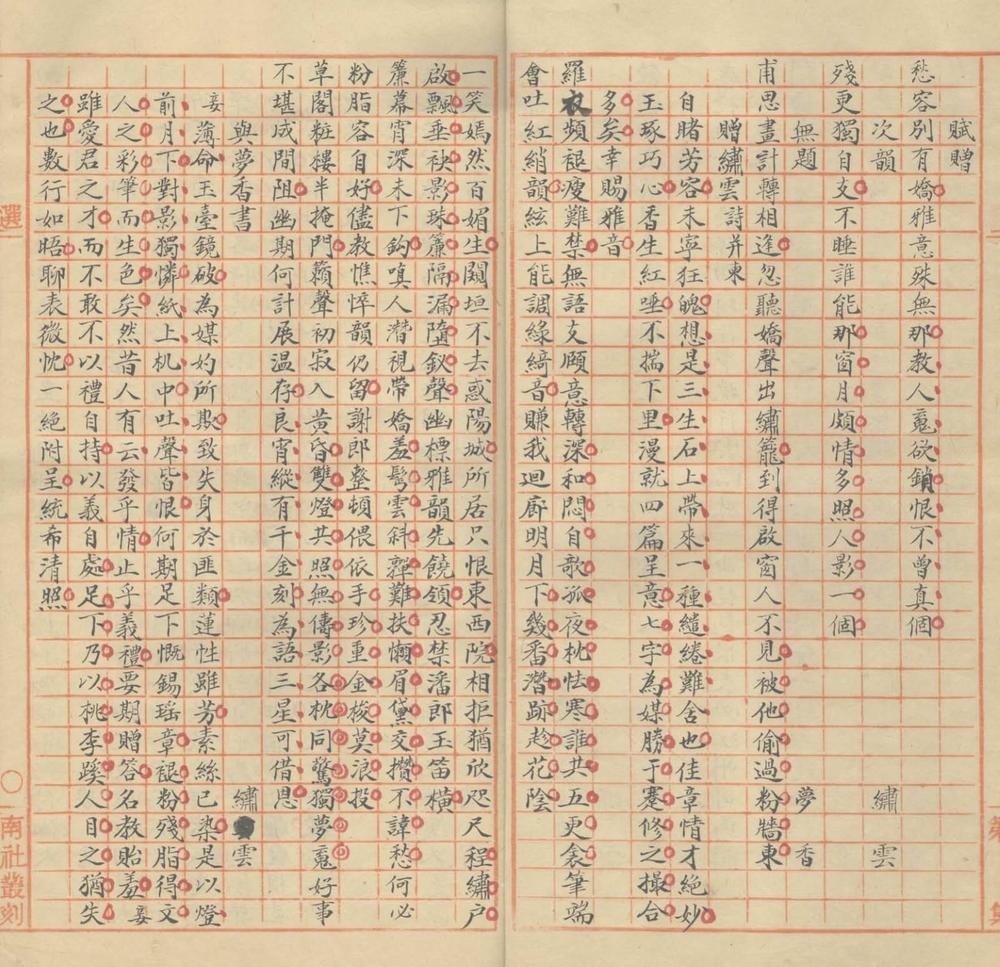 賦贈
愁容別有嬌雅意殊無那教人䰟欲鎖恨不曾真個
次韻　繡雲
殘更獨自支不睡誰能那窗月頗情多照人影一個
無題　夢香
甫思畫計轉相逢忽聽嬌聲出繡籠到得啟窗人不見被他偷過粉牆東
贈繡雲詩并柬
自睹芳容未寧狂魄想是三生石上帶來一種繾綣難舍也佳章情才絕妙
玉琢巧心香生紅唾不揣下里漫就四篇呈意七字為媒勝于蹇修之撮合
多矣幸賜雅音
羅衣頻褪瘦難禁無語支頤意轉深和悶自歌孤夜枕怯寒誰共五更衾筆端
會吐紅綃韻絃上能調綠綺音賺我迴廊明月下幾番潛跡趁花陰
一笑嫣然百媚生闚垣不去惑陽城所居只恨東西院相拒猶欣咫尺程繡戶
啟飄垂袂影珠簾隔漏墮釵聲幽標雅韻先饒領忍禁潘郎玉笛橫
簾幕宵深未下鈎嗔人潛視帶嬌羞鬢雲斜嚲難扶懶眉黛交攢不諱愁何必
粉脂容自好儘教憔悴韻仍留謝郎整頓偎依手珍重金梭莫浪投
草閣粧樓半掩門籟聲初寂入黃昏雙燈共照無儔影各枕同驚獨夢䰟好事
不堪成間阻幽期何計展溫存良宵縱有千金刻為語三星可借恩
與夢香書　繡雲
妾薄命玉臺鏡破為媒妁所欺致失身於匪類蓮性雖芳素絲已染是以燈
前月下對影獨憐紙上机中吐聲皆恨何期足下慨錫瑤章褪粉殘脂得文
人之彩筆而生色矣然昔人有云發乎情止乎義禮要期贈答名教貽羞妾
雖愛君之才而不敢不以禮自持以義自處足下乃以桃李蹊人目之猶失
之也數行如晤聊表微忱一絕附呈統希清照
選
南社叢刻